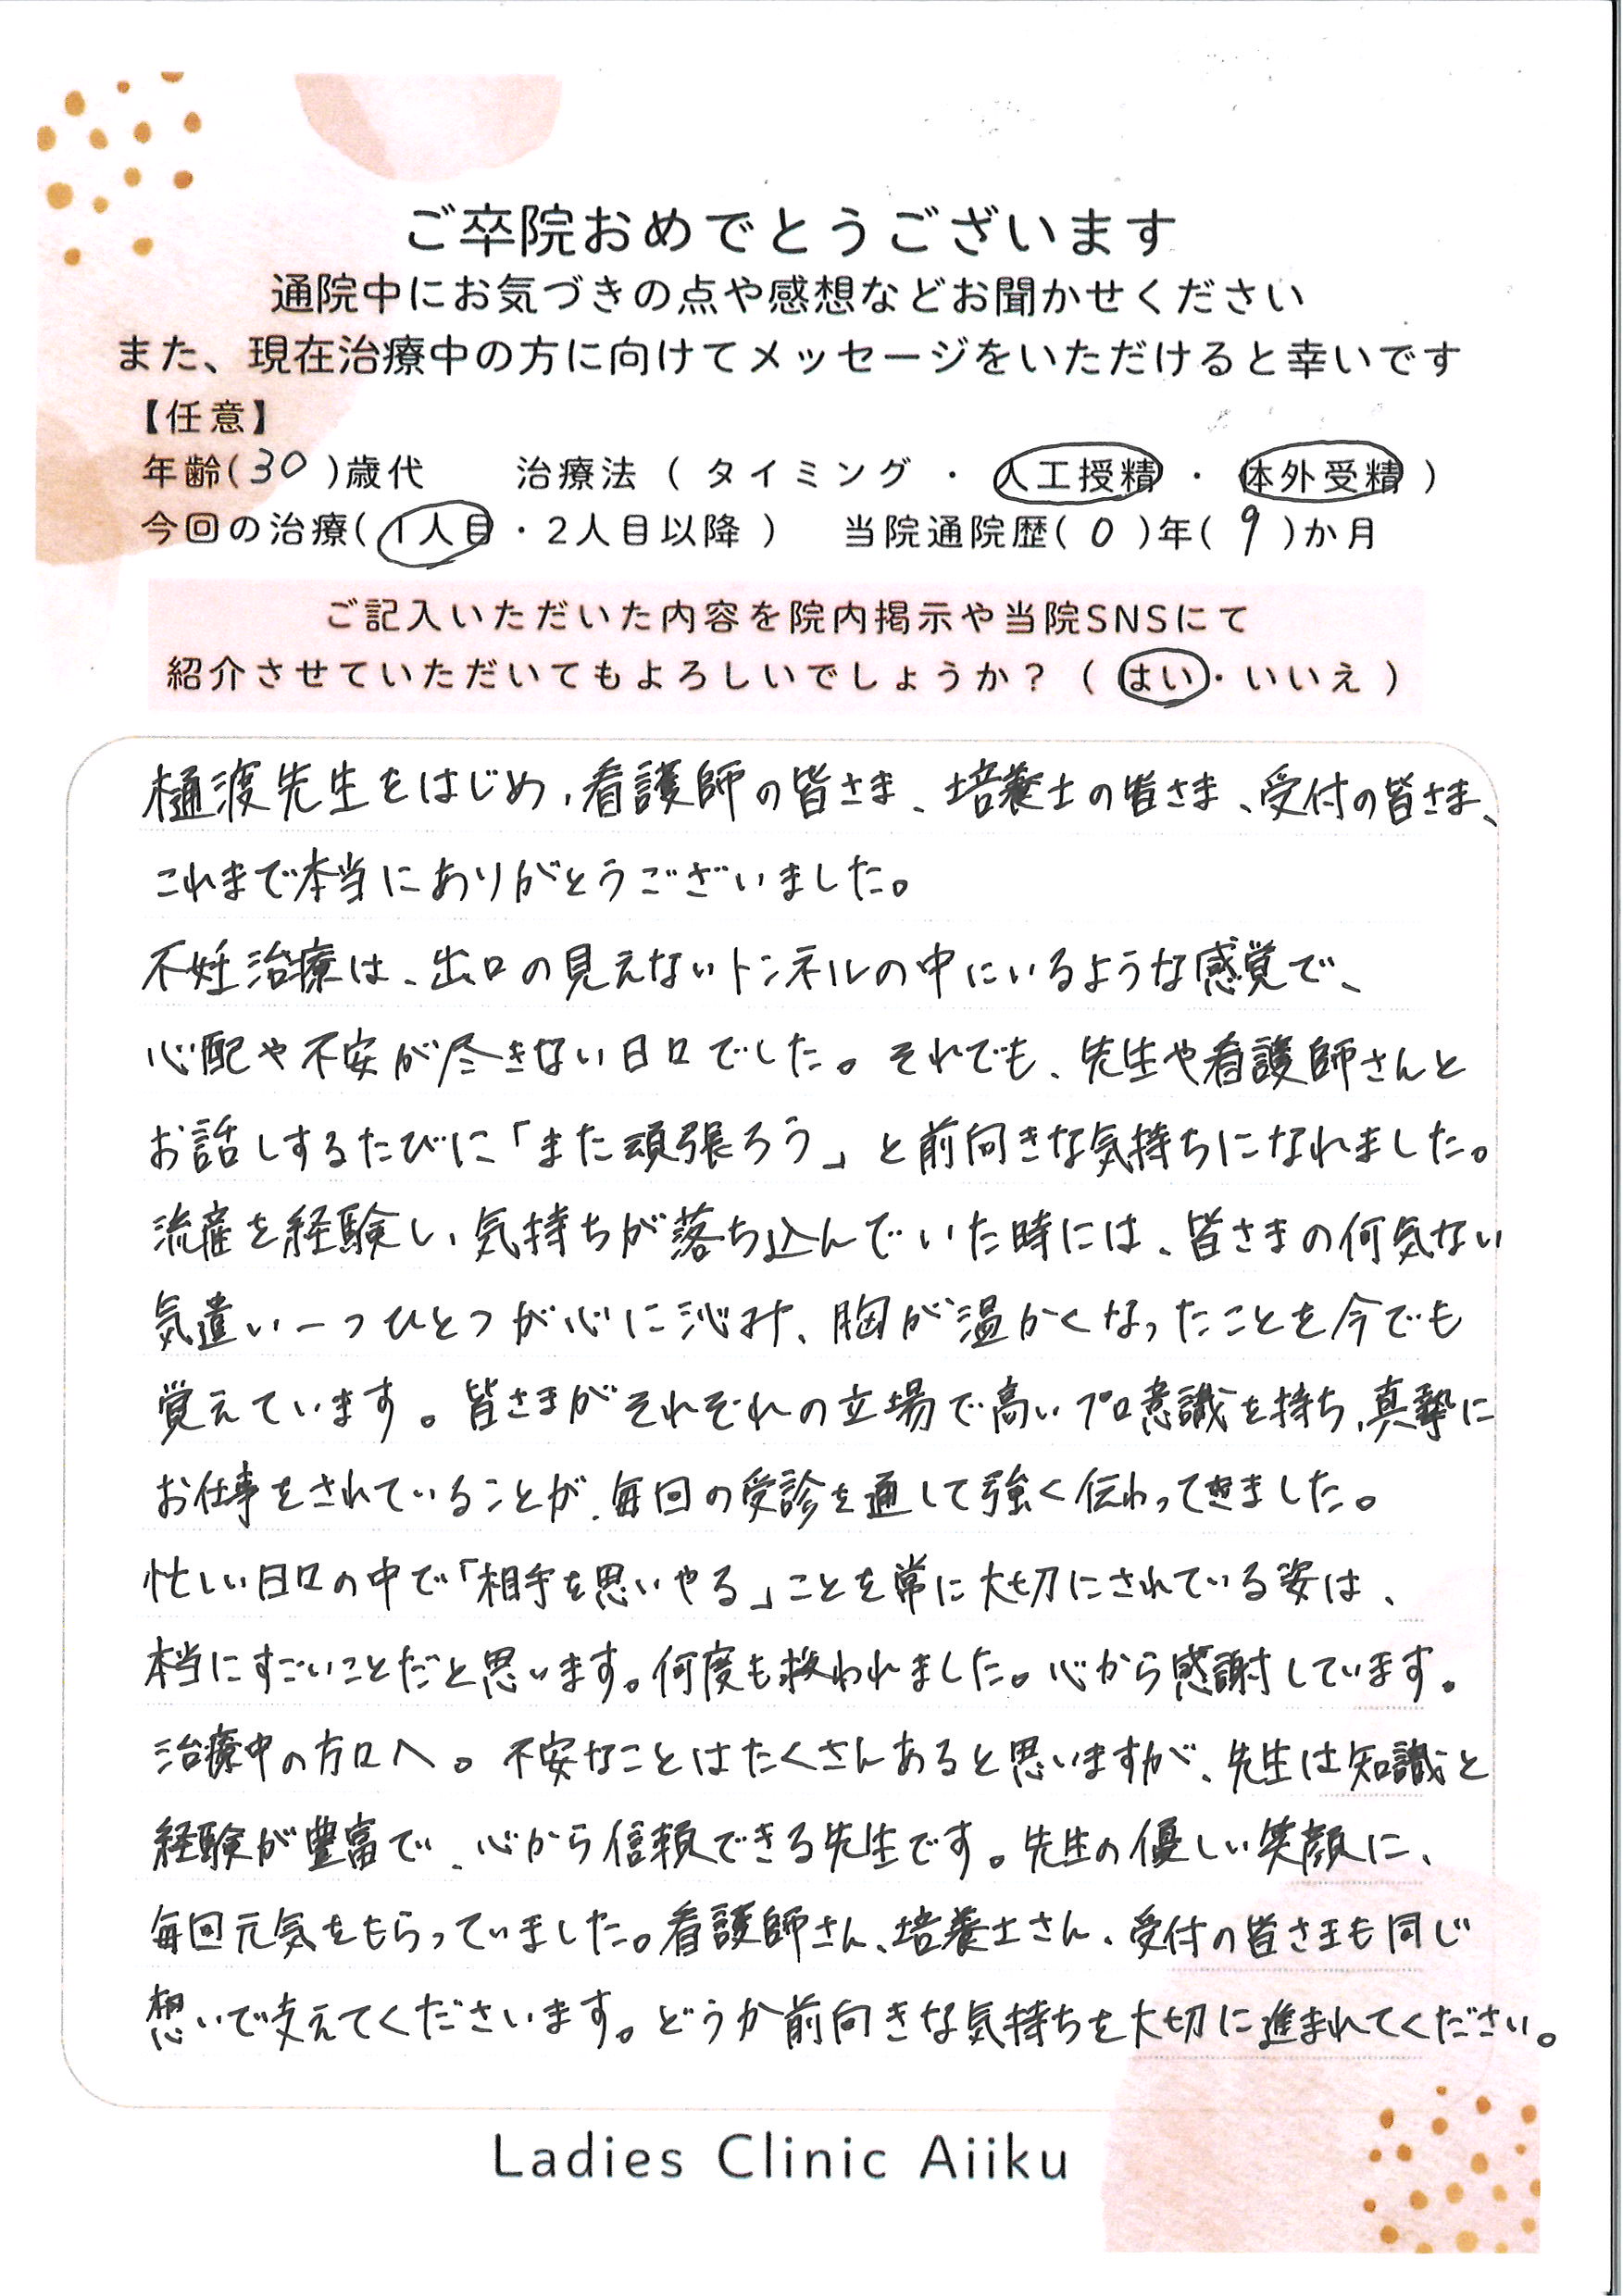 ご卒院おめでとうございます
通院中にお気づきの点や感想などお聞かせください
また、現在治療中の方に向けてメッセージをいただけると幸いです
【任意】
年齢(30)歳代　治療法（タイミング・人工授精・体外受精）
今回の治療(1人目・2人目以降)　当院通院歴(0)年(9)か月
ご記入いただいた内容を院内掲示や当院SNSにて
紹介させていただいてもよろしいでしょうか？（はい・いいえ）
樋渡先生をはじめ、看護師の皆さま、培養士の皆さま、受付の皆さま、
これまで本当にありがとうございました。
不妊治療は、出口の見えないトンネルの中にいるような感覚で、
心配や不安が尽きない日々でした。それでも、先生や看護師さんと
お話しするたびに「また頑張ろう」と前向きな気持ちになれました。
流産を経験し、気持ちが落ち込んでいた時には、皆さまの何気ない
気遣い一つひとつが心に沁み、胸が温かくなったことを今でも
覚えています。皆さまがそれぞれの立場で高いプロ意識を持ち、真摯に
お仕事をされていることが、毎回の受診を通して強く伝わってきました。
忙しい日々の中で「相手を思いやる」ことを常に大切にされている姿は、
本当にすごいことだと思います。何度も救われました。心から感謝しています。
治療中の方々へ。不安なことはたくさんあると思いますが、先生は知識と
経験が豊富で、心から信頼できる先生です。先生の優しい笑顔に、
毎回元気をもらっていました。看護師さん、培養士さん、受付の皆さまも同じ
想いで支えてくださいます。どうか前向きな気持ちを大切に進まれてください。
Ladies Clinic Aiiku